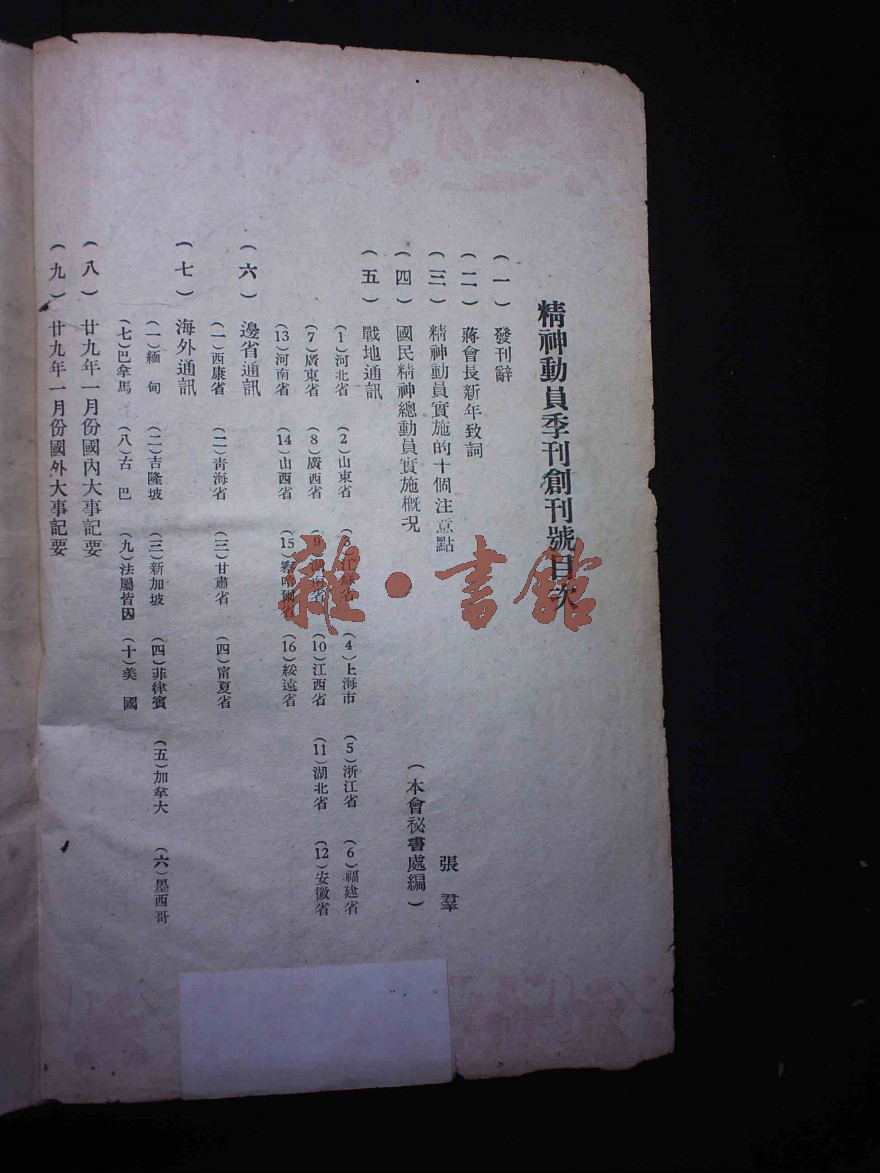 精神動員季刊創刊號目次
（一）發刊辭
（二）蔣會長新年致詞
（三）精神動員實施的十個注意點 張羣
（四）國民精神總動員實施概况 （本會秘書處編）
（五）戰地通訊
（1）河北省 （2）山東省 （3）江蘇省 （4）上海市 （5）浙江省 （6）福建省
（7）廣東省 （8）廣西省 （9）湖南省 （10）江西省 （11）湖北省 （12）安徽省
（13）河南省 （14）山西省 （15）察哈爾省 （16）綏遠省
（六）邊省通訊
（一）西康省 （二）青海省 （三）甘肅省 （四）甯夏省
（七）海外通訊
（一）緬甸 （二）吉隆坡 （三）新加坡 （四）菲律賓 （五）加拿大 （六）墨西哥
（七）巴拿馬 （八）古巴 （九）法屬皆因 （十）美國
（八）廿九年一月份國內大事記要
（九）廿九年一月份國外大事記要
雜·書館